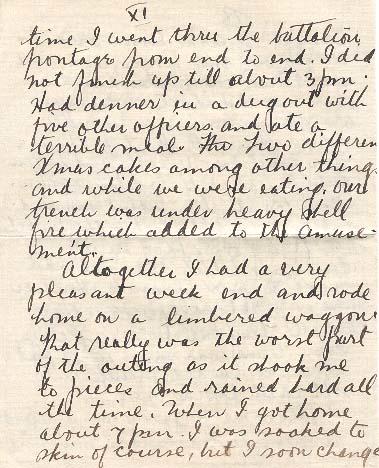 XI
time I went thru the battalion
frontage from end to end. I did
not finish up till about 3 pm.
Had denner in a dugout with
five other officers. and ate a
terrible meal. The two differen
Xmas cakes among other things
and while we were eating, our
trench was under heavy shell
fire which added to the amuse-
ment.
Altogether I had a very
pleasant week end and rode
home on a limbered waggon
that really was the worst part
of the outing as it shook me
to pieces and rained hard all
the time. When I got home
about 7 pm. I was soaked to
skin of course, but I soon change